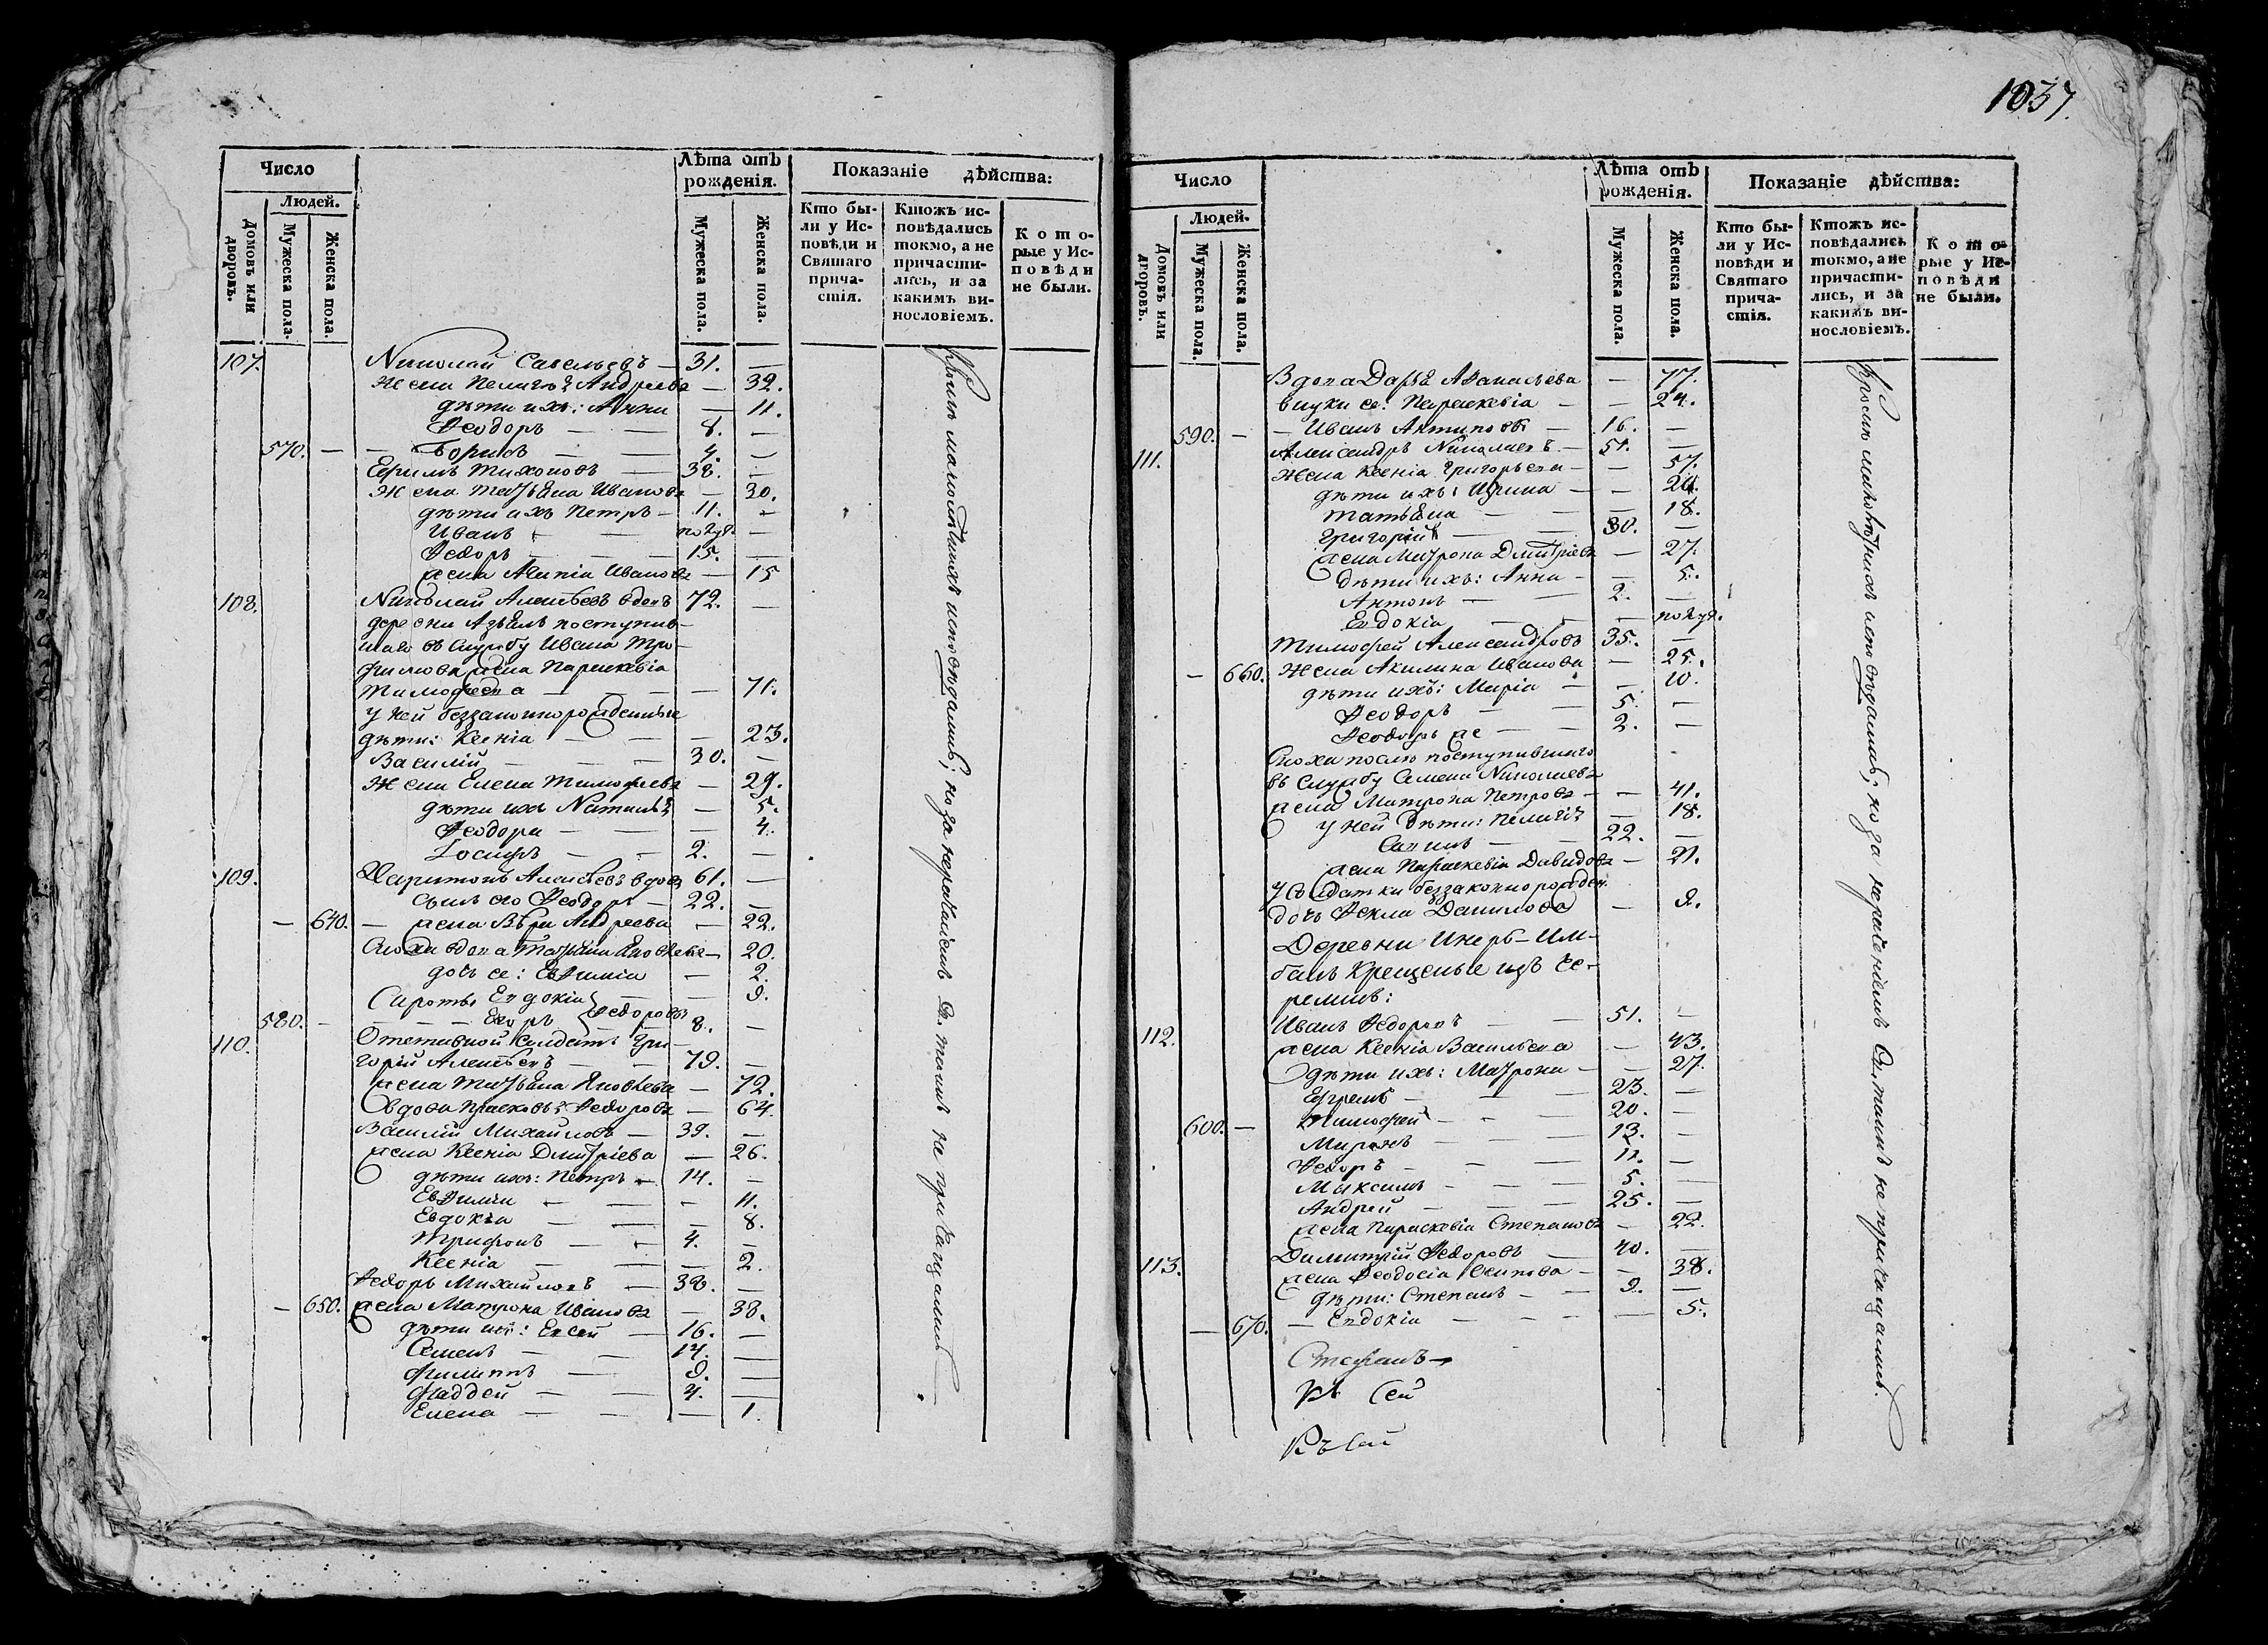 1037.
Число
Людей.
Домовъ или дворовъ.
Мужеска пола.
Женска пола.
Лѣта отъ рожденія.
Мужеска пола.
Женска пола.
Показаніе дѣйства:
Кто бы-
ли у Ис-
повѣди и
Святаго
прича-
стія.
Ктожъ ис-
повѣдались
токмо, а не
причасти-
лись, и за
какимъ ви-
нословіемъ.
Кото-
рые у Ис-
повѣди
не были.
107. Николай Савельевъ — 31. —
Жена Пелагія Андреева — 32.
дѣти ихъ: Анна — 11.
Ѳеодоръ — — 8. —
570. — — Борисъ — — 4. —
Ефимъ Тихоновъ — 38. —
Жена Татьяна Иванова — 30.
дѣти ихъ Петръ — 11. —
Иванъ — полуг. —
Ѳедоръ — — 15. —
жена Иванова — 15
108. Николай Алексѣевъ вдовъ 72. —
деревни поступив-
шаго въ Службу Ивана Тро-
фимова жена Параскевія
Тимофеева — — — 71.
у ней беззаконнорожденные
дѣти: Ксенія — — — 23.
Василій — — 30. —
Жена Елена Тимофеева — 29.
дѣти ихъ Наталья — 5.
Ѳеодора — — — 4.
Іосифъ — — 2. —
109. Харитонъ Алексѣевъ вдовъ 61. —
сынъ его Ѳеодоръ — 22. —
— 640. — жена Вѣра Андреева — 22.
Сноха вдова Татьяна Яковлева — 20.
дочь ее: Евѳимія — 2.
Сироты Евдокія — — 9.
580. — — — — Егоръ Ѳедоровы 8. —
110. Отставной Солдатъ Гри-
горій Алексѣевъ — — 79. —
жена Татьяна Яковлева — 72.
вдова Прасковья Ѳедорова — 64.
Василій Михайловъ — 39. —
жена Ксенія Дмитріева — 26.
дѣти ихъ: Петръ — 14. —
Евѳимія — — — 11.
Евдокія — — — 8.
Трифонъ — — 4. —
Ксенія — — — 2.
Ѳедоръ Михайловъ — 38. —
— 650. жена Матрона Иванова — 38.
дѣти ихъ: Евсей — 16. —
Семенъ — — 14. —
Филиппъ — 9. —
Фаддей — — 4. —
Елена — — — 1.
Кромѣ малолѣтнихъ исповѣдались, но за нераченіемъ Св. таинъ не причащались
Число
Людей.
Домовъ или дворовъ.
Мужеска пола.
Женска пола.
Лѣта отъ рожденія.
Мужеска пола.
Женска пола.
Показаніе дѣйства:
Кто бы-
ли у Ис-
повѣди и
Святаго
прича-
стія.
Ктожъ ис-
повѣдались
токмо, а не
причасти-
лись, и за
какимъ ви-
нословіемъ.
Кото-
рые у Ис-
повѣди
не были.
Вдова Дарья Аѳанасьева — 77.
внуки ее: Параскевія — — 24.
590. — — Иванъ Антиповъ — 16. —
111. Александръ Николаевъ — 51. —
Жена Ксенія Григорьева — — 57.
дѣти ихъ: Ирина — — 20.
Татьяна — — — 18.
Григорій — 30. —
жена Матрона Дмитріева — 27.
дѣти ихъ: Анна — — 5.
Антонъ — — 2. —
Евдокія — — — полуг.
Тимофей Александровъ 35. —
— 660. Жена Акилина Иванова — 25.
дѣти ихъ: Марія — — 10.
Ѳеодоръ — — 5. —
Ѳеодоръ же — — 2. —
Сноха послѣ поступившаго
въ Службу Семена Николаева
жена Матрона Петрова — — 41.
у ней дѣти: Пелагія — 18.
— — 22. —
жена Параскевія Давидова — 21.
у Солдатки беззаконнорожден.
дочь Ѳекла Данилова — 9.
Деревни Инерь-Им-
балъ Крещеные изъ Че-
ремисъ:
112. Иванъ Ѳедоровъ — — 51. —
жена Ксенія Васильева — 43.
дѣти ихъ: Матрона — — 27.
Ефремъ — — — 23. —
Тимофей — — 20. —
600. — Миронъ — — 13. —
Ѳедоръ — — — 11. —
Максимъ — — — 5. —
Андрей — — — 25. —
жена Параскевія Степанова — 22.
113. Димитрій Ѳедоровъ — 40. —
жена Ѳеодосія Осипова — — 38.
дѣти: Степанъ — — 9. —
— 670. — Евдокія — — — — 5.
Стефанъ
Къ Сей
Къ Сей
Кромѣ малолѣтнихъ исповѣдались, но за нераченіемъ Св. таинъ не причащались.